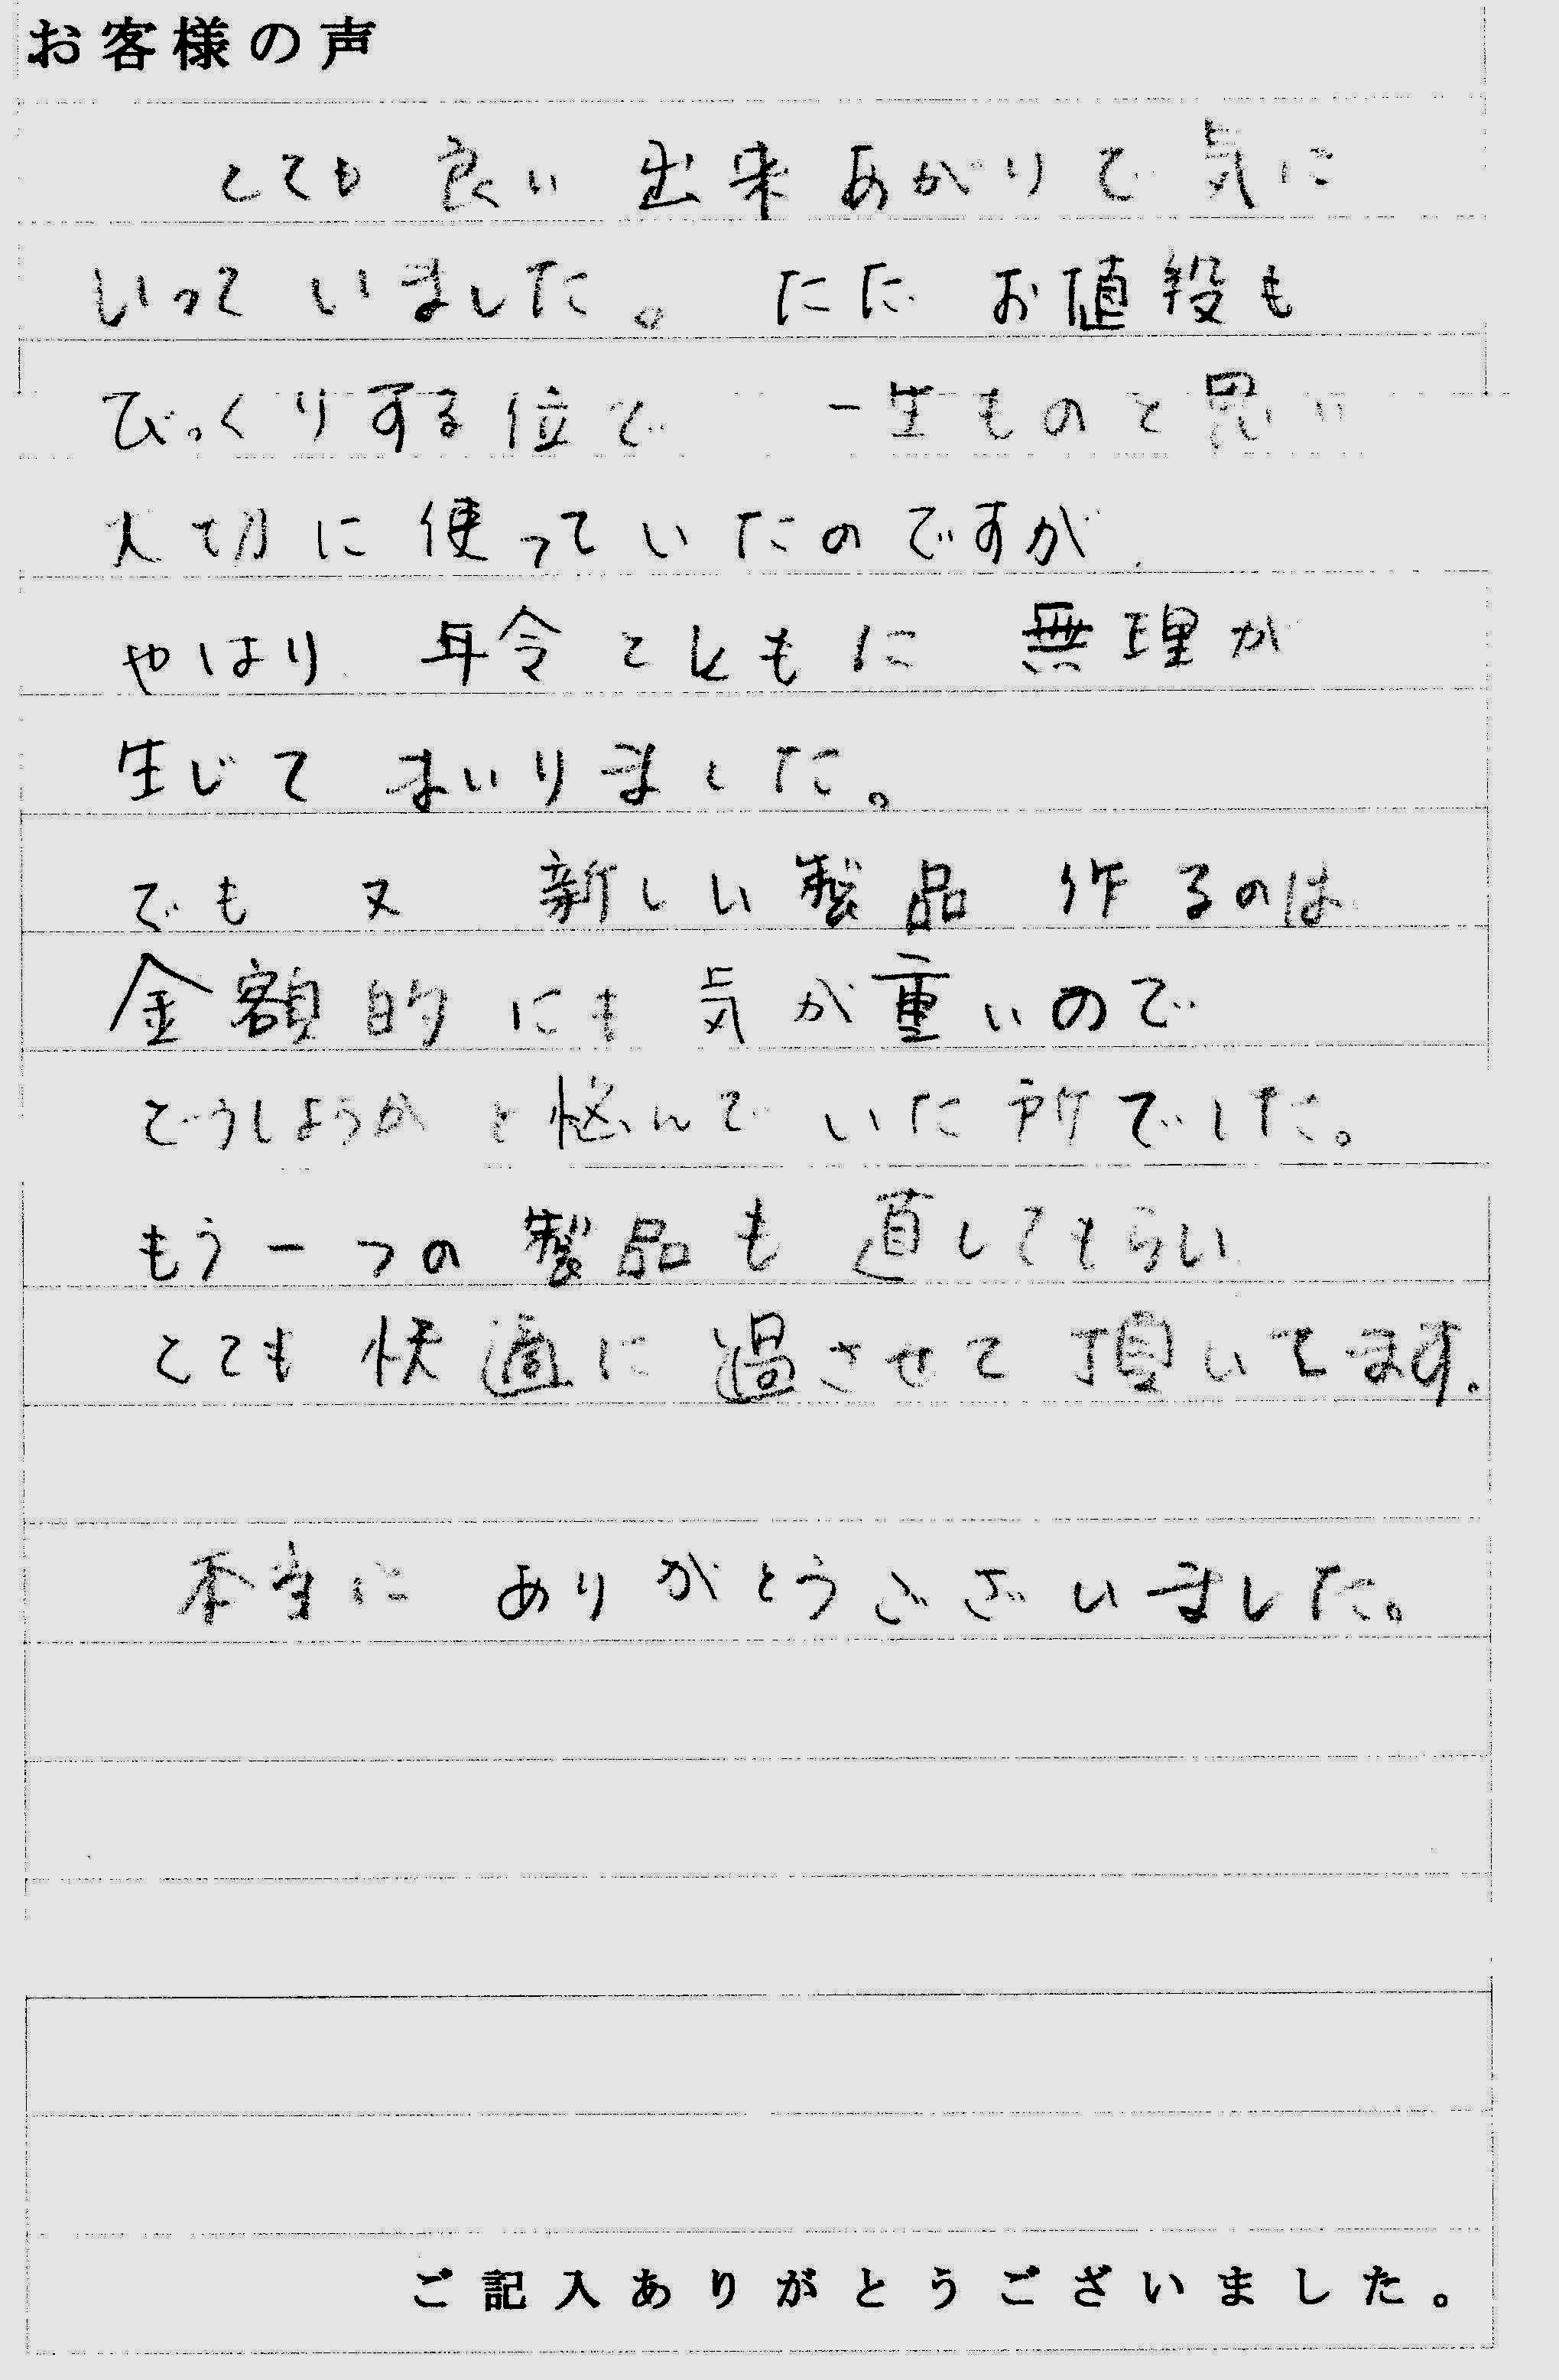 お客様の声
とても良い出来あがりで気に
いっていました。ただお値段も
びっくりする位で 一生ものと思い
大切に使っていたのですが、
やはり 年令とともに 無理が
生じてまいりました。
でも又 新しい製品 作るのは
金額的にも気が重いので
どうしようかと悩んでいた所でした。
もう一つの製品も直してもらい
とても快適に過させて頂いてます。
本当に ありがとうございました。
ご記入ありがとうございました。